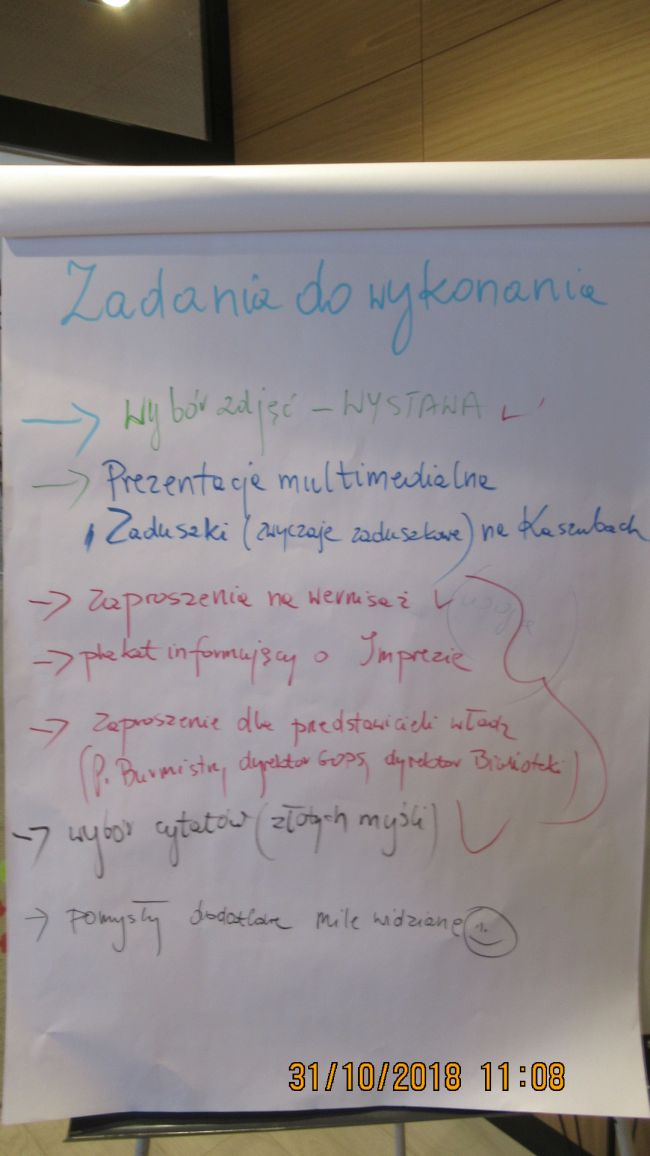 Zadania do wykonania
→ Wybór zdjęć – WYSTAWA
→ Prezentacje multimedialne
Zaduszki (zwyczaje zaduszkowe) na Kaszubach
→ zaproszenia na wernisaż
→ plakat informujący o Imprezie
→ zaproszenie dla przedstawicieli władz
(P. Burmistrz, dyrektor GOPS, dyrektor Biblioteki)
→ wybór cytatów (złotych myśli)
→ pomysły dodatkowe mile widziane
31/10/2018 11:08